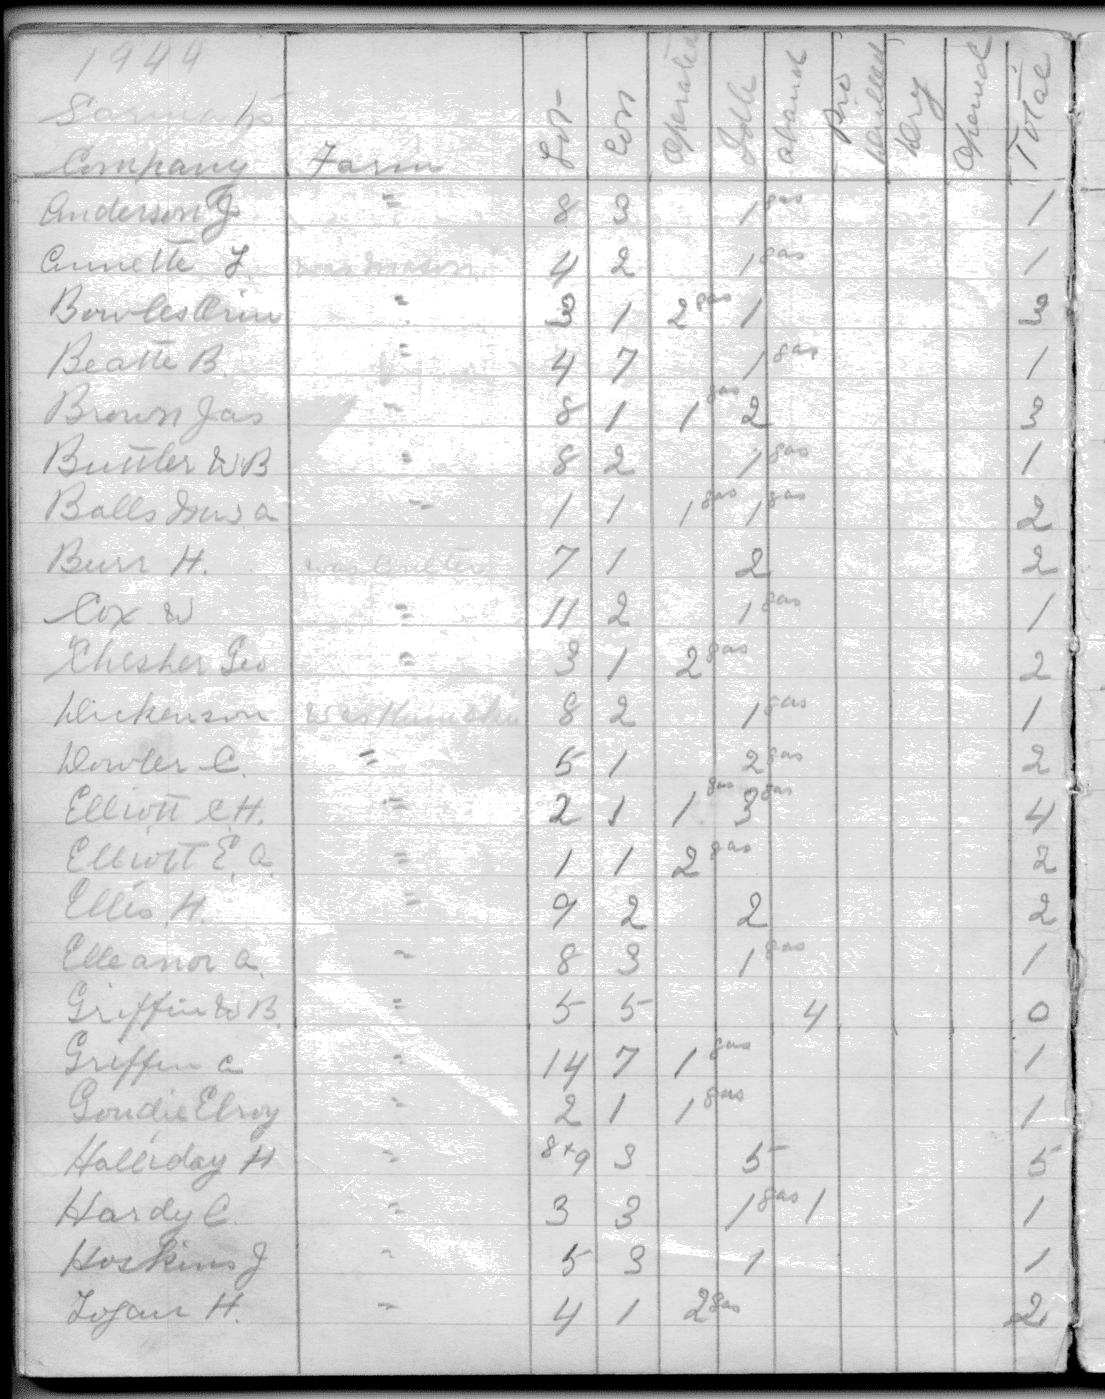 1944
Sarnia
Company Farm Lot Con Operated Idle Aband Pro Drilled Dry Opened Total
Anderson J " 8 3 1 gas 1
Annette F. was 4 2 1 gas 1
Bowles Orin " 3 1 2 gas 1 3
Beatte B. " 4 7 1 gas 1
Brown Jas " 8 1 1 gas 2 3
Buttler W B " 8 2 1 gas 1
Balls a " 1 1 1 gas 1 gas 2
Burr H. was Coulter 7 1 2 2
Cox W " 11 2 1 gas 1
Chesher Geo " 3 1 2 gas 2
Dickenson was 8 2 1 gas 1
Dowler C. " 5 1 2 gas 2
Elliott C.H. " 2 1 1 gas 3 gas 4
Elliott E. a. " 1 1 2 gas 2
Ellis H. " 9 2 2 2
Elleanor a. " 8 3 1 gas 1
Griffin W B. " 5 5 4 0
Griffin a " 14 7 1 gas 1
Goudie Elroy " 2 1 1 gas 1
Halliday H " 8+9 3 5 5
Hardy C. " 3 3 1 gas 1 1
Hoskins J " 5 3 1 1
Logan H. " 4 1 2 gas 2